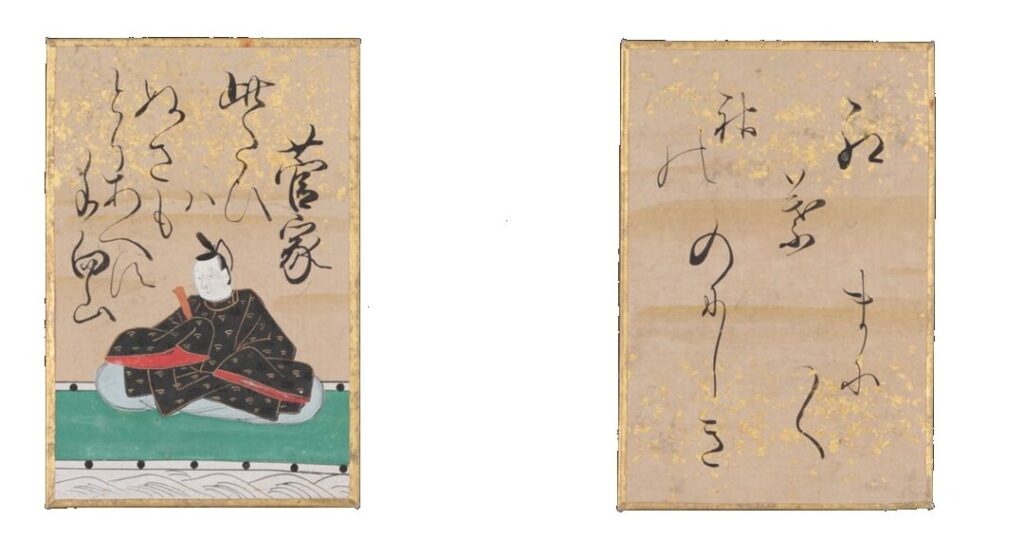 菅家
此たひ
ハ
ぬさも
とりあへす
手向山
紅葉
のにしき
神の
まに〱